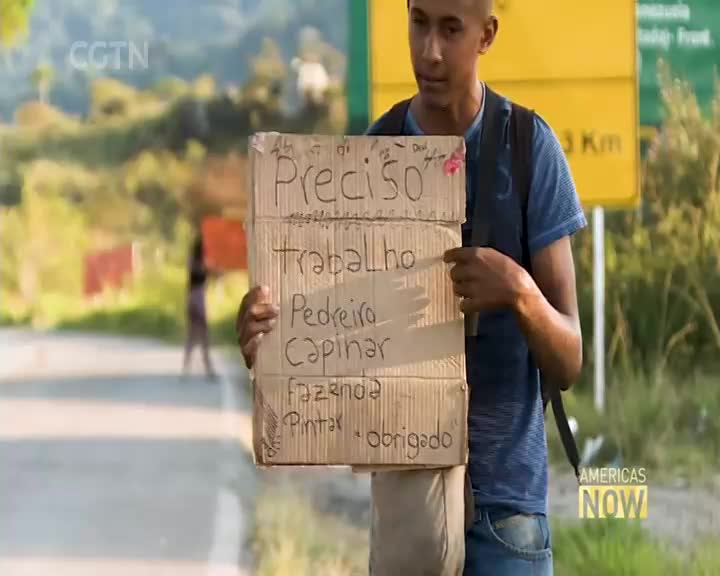 CGTN
Preciso
trabaLho
Pedreiro
capinar
Fazenda
Pintar "obrigado"
Km
AMERICAS
NOW